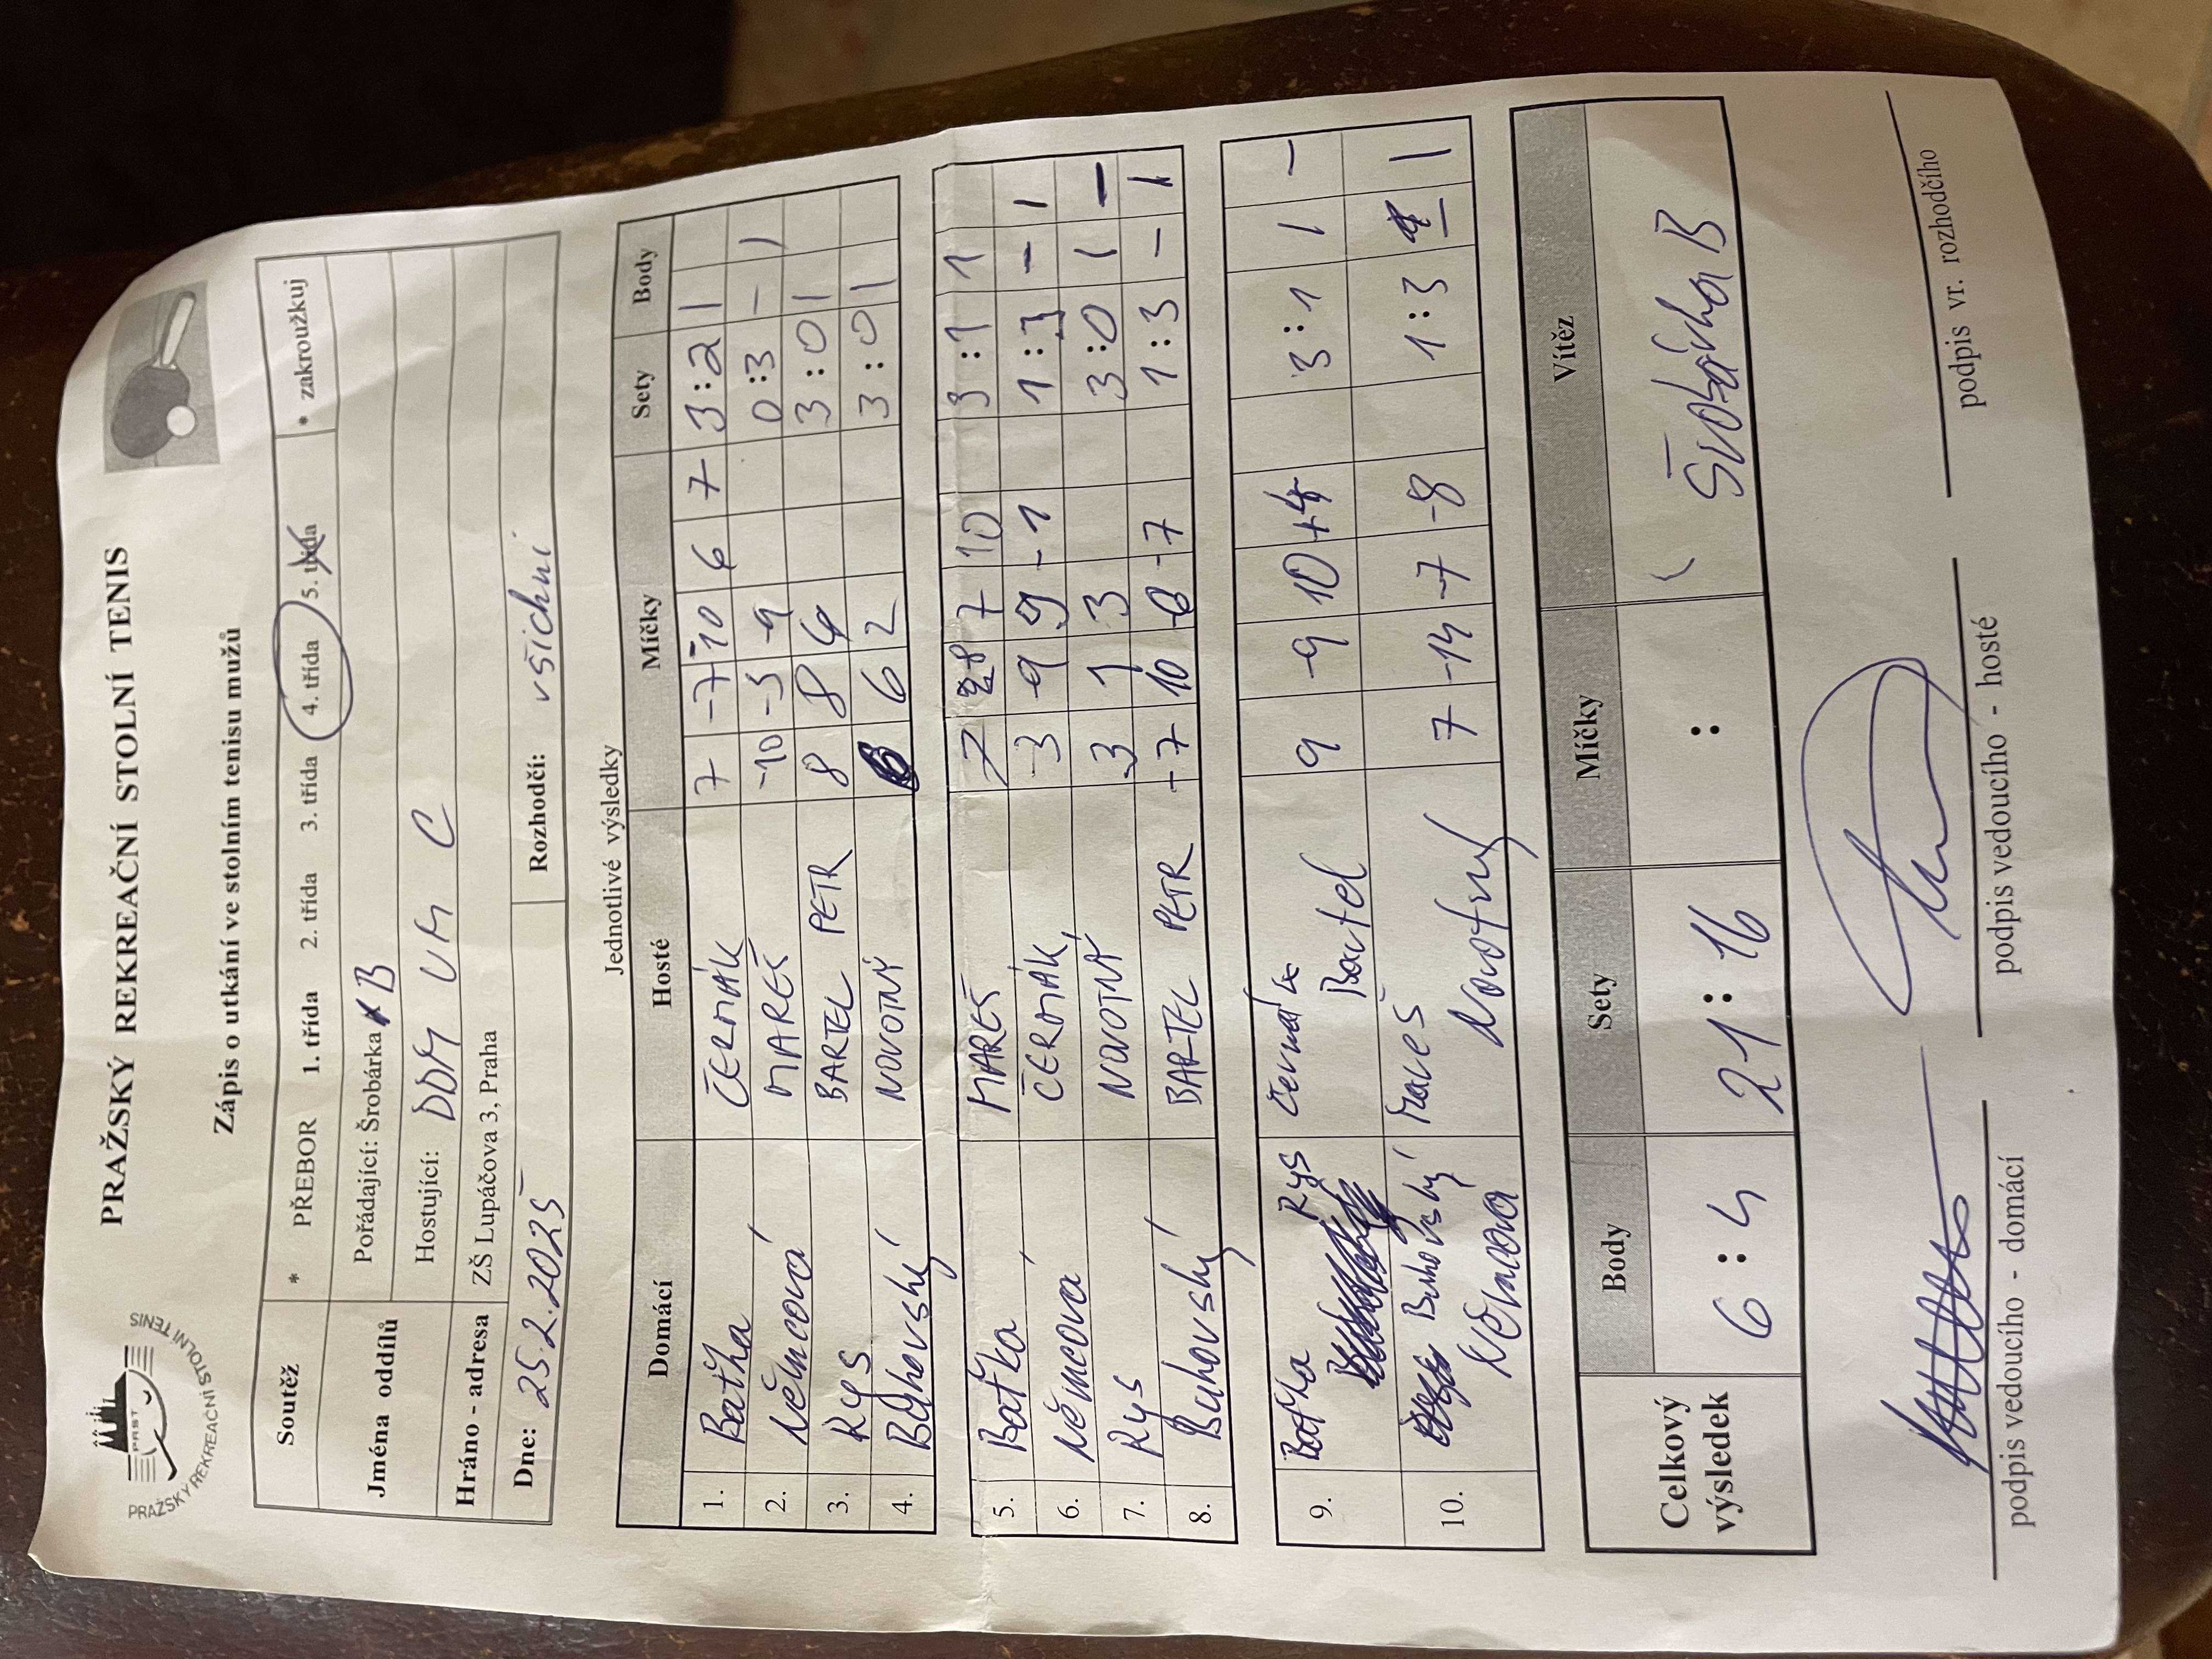 PRAŽSKÝ REKREAČNÍ STOLNÍ TENIS
PRAST
PRAŽSKÝ REKREAČNÍ STOLNÍ TENIS
Zápis o utkání ve stolním tenisu mužů
Soutěž * PŘEBOR 1. třída 2. třída 3. třída 4. třída 5. třída * zakroužkuj
Jména oddílů Pořádající: Šrobárka B
Hostující: DDM UM C
Hráno - adresa ZŠ Lupáčova 3, Praha
Dne: 25.2.2025 Rozhodčí: všichni
Jednotlivé výsledky
Domácí Hosté Míčky Sety Body
1. Baťka ČERMÁK 7 -7 -10 6 7 3:2 1
2. Němcová MAREŠ -10 -5 -9 0:3 - 1
3. Rys BARTEL PETR 8 8 4 3:0 1
4. Buhovský NOVOTNÝ 6 6 2 3:0 1
5. Baťka MAREŠ 7 -8 7 10 3:1 1
6. Němcová ČERMÁK -3 -9 9 -1 1:3 - 1
7. Rys NOVOTNÝ 3 7 3 3:0 1 -
8. Buhovský BARTEL PETR -7 10 -8 -7 1:3 - 1
9. Baťka Rys Čermák Bartel 9 -9 10 +4 3:1 1 -
10. Buhovský Němcová Mareš Novotný 7 -14 -7 -8 1:3 - 1
Celkový výsledek Body Sety Míčky Vítěz
6 : 4 21 : 16 : Šrobárka B
podpis vedoucího - domácí podpis vedoucího - hosté podpis vr. rozhodčího